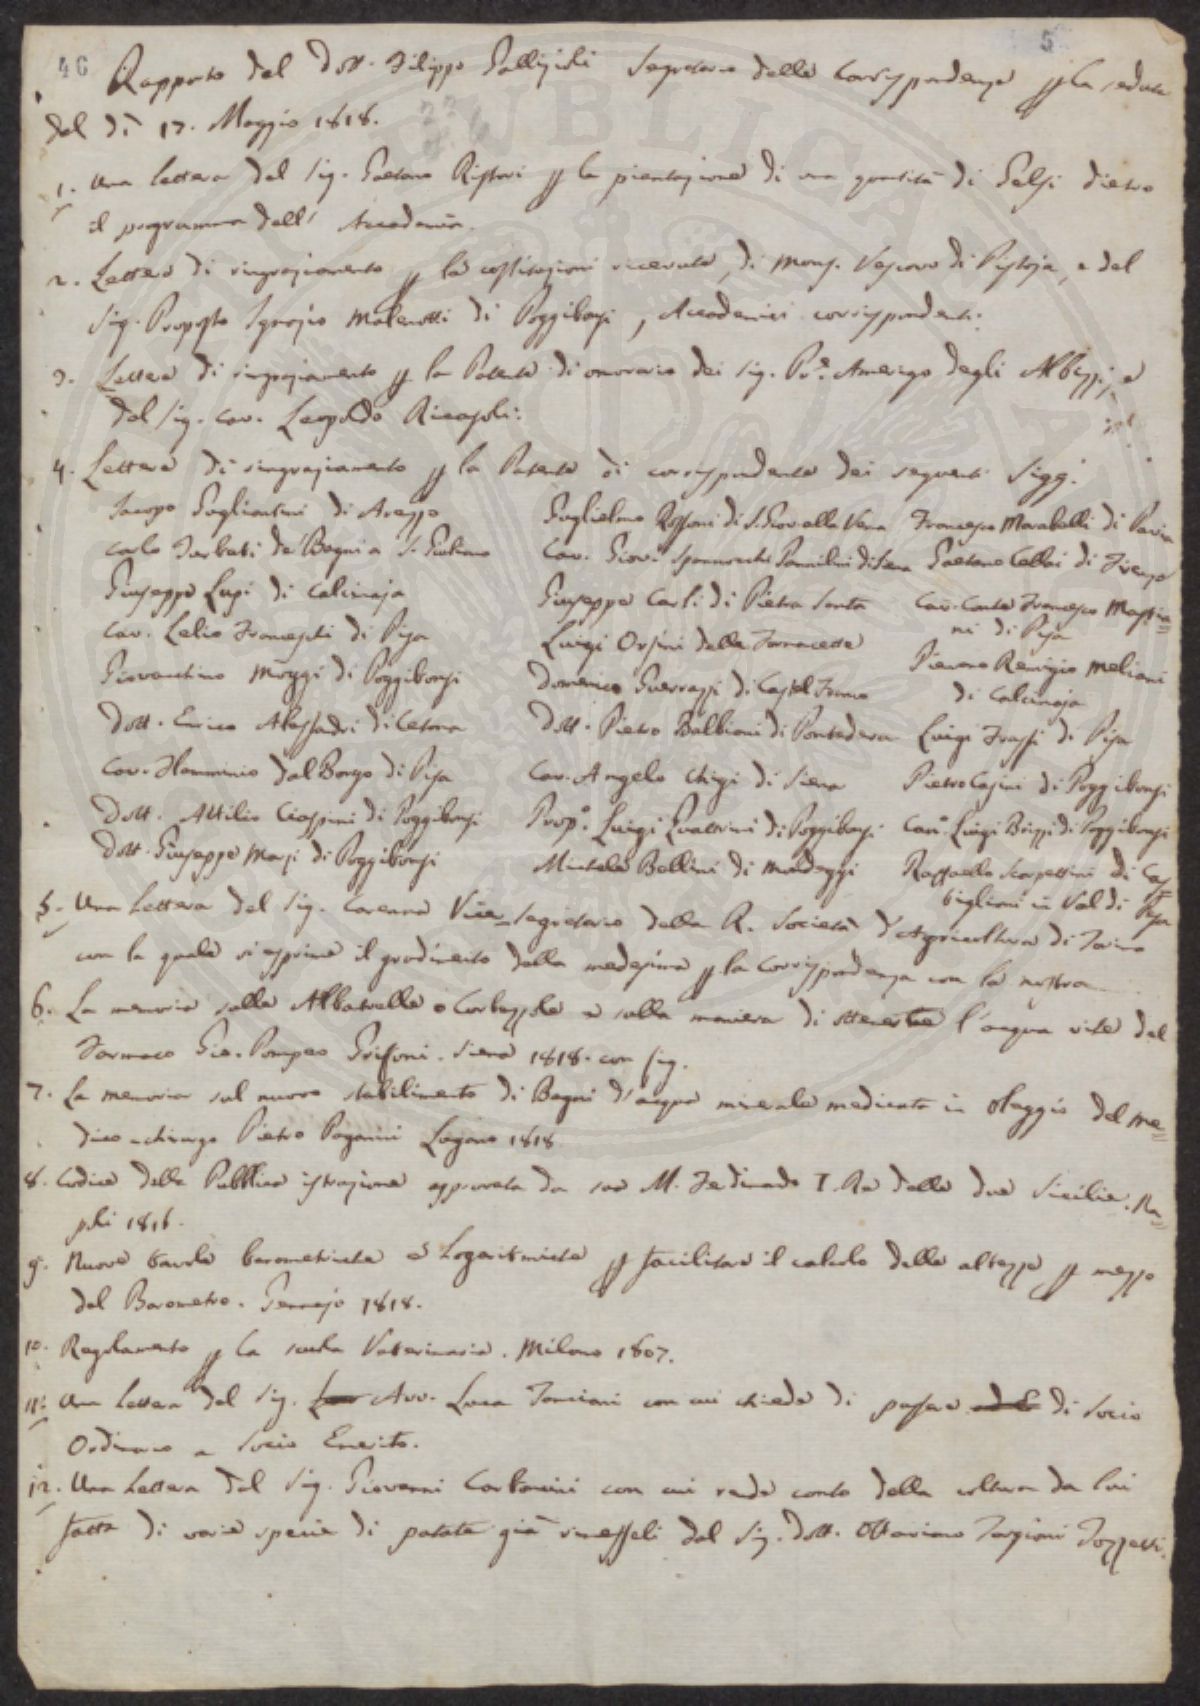 46
5
Rapporto del Dott. Filippo Gallizioli Segretario delle Corrispondenze p la seduta
del dì 17. Maggio 1818.
1. Una lettera del Sig. Gaetano Ristori p la piantazione di una quantità di Gelsi dietro
il programma dell' Accademia.
2. Lettere di ringraziamento p la costituzioni ricevute, di Mons. Vescovo di Pistoja, e del
Sig. Proposto Ignazio Malenotti di Poggibonsi, Accademici corrispondenti.
3. Lettere di ringraziamento p la Patente di onorario dei Sig. Pr.e Amerigo degli Albizzi, e
del Sig. Cav. Leopoldo Ricasoli:
4. Lettere di ringraziamento p la Patente di corrispondente dei seguenti Sigg.i
Jacopo Gagliardini di Arezzo
Guglielmo Rossoni di S. Giov alla Vena
Francesco Marabelli di Pavia
Carlo Barbati de' Bagni a S. Giuliano
Cav. Giov. Spannocchi Pannilini di Siena
Gaetano Cellai di Firenze
Giuseppe Lupi di Calcinaja
Giuseppe Carli di Pietra Santa
Can. Conte Francesco Mastia=
ni di Pisa
Cav. Lelio Franceschi di Pisa
Luigi Orsini delle Fornacette
Pievano Remigio Meliani
di Calcinaja
Giovantino Moggi di Poggibonsi
Domenico Guerrazzi di Castel Franco
Dott. Enrico Alessandri di Cetona
Dott. Pietro Balbiani di Pontedera
Luigi Frassi di Pisa
Cav. Flamminio Dal Borgo di Pisa
Cav. Angelo Chigi di Siena
Pietro Casini di Poggibonsi
Dott. Attilio Ciaspini di Poggibonsi
Prop.o Luigi Qualtrini di Poggibonsi
Can.o Luigi Brizzi di Poggibonsi
Dott. Giuseppe Marzi di Poggibonsi
Michele Bellini di Mondeggi
Raffaello Scarpettini di Cas
tiglioni in Val di Pesa
5. Una Lettera del Sig. Carena Vice-segretario della R. Società d'Agricoltura di Torino
con la quale si esprime il gradimento della medesima p la Corrispondenza con la nostra
6. La memoria sulle Albatrelle o Corbezzole e sulla maniera di ottenerne l'acqua vite del
Farmaco Gio. Pompeo Grifoni. Siena 1818. con fig.
7. La memoria sul nuovo stabilimento di Bagni d'acqua minerale medicata in Oleggio del me=
dico-chirurgo Pietro Paganini Lugano 1818
8. Codice della Pubblica istruzione approvata da sua M. Ferdinando I. Re delle due Sicilie. Na=
poli 1816.
9. Nuove tavole barometriche e Logaritmiche p facilitare il calcolo delle altezze p mezzo
del Barometro. Gennajo 1818.
10. Regolamento p la scuola Veterinaria. Milano 1807.
11. Una Lettera del Sig. Avv. Luca Tonciani con cui chiede di passare di socio
Ordinario a Socio Emerito.
12. Una Lettera del Sig. Giovanni Carboncini con cui rende conto della coltura da lui
fatta di varie specie di patate già rimesseli dal Sig. Dott. Ottaviano Targioni Tozzetti.